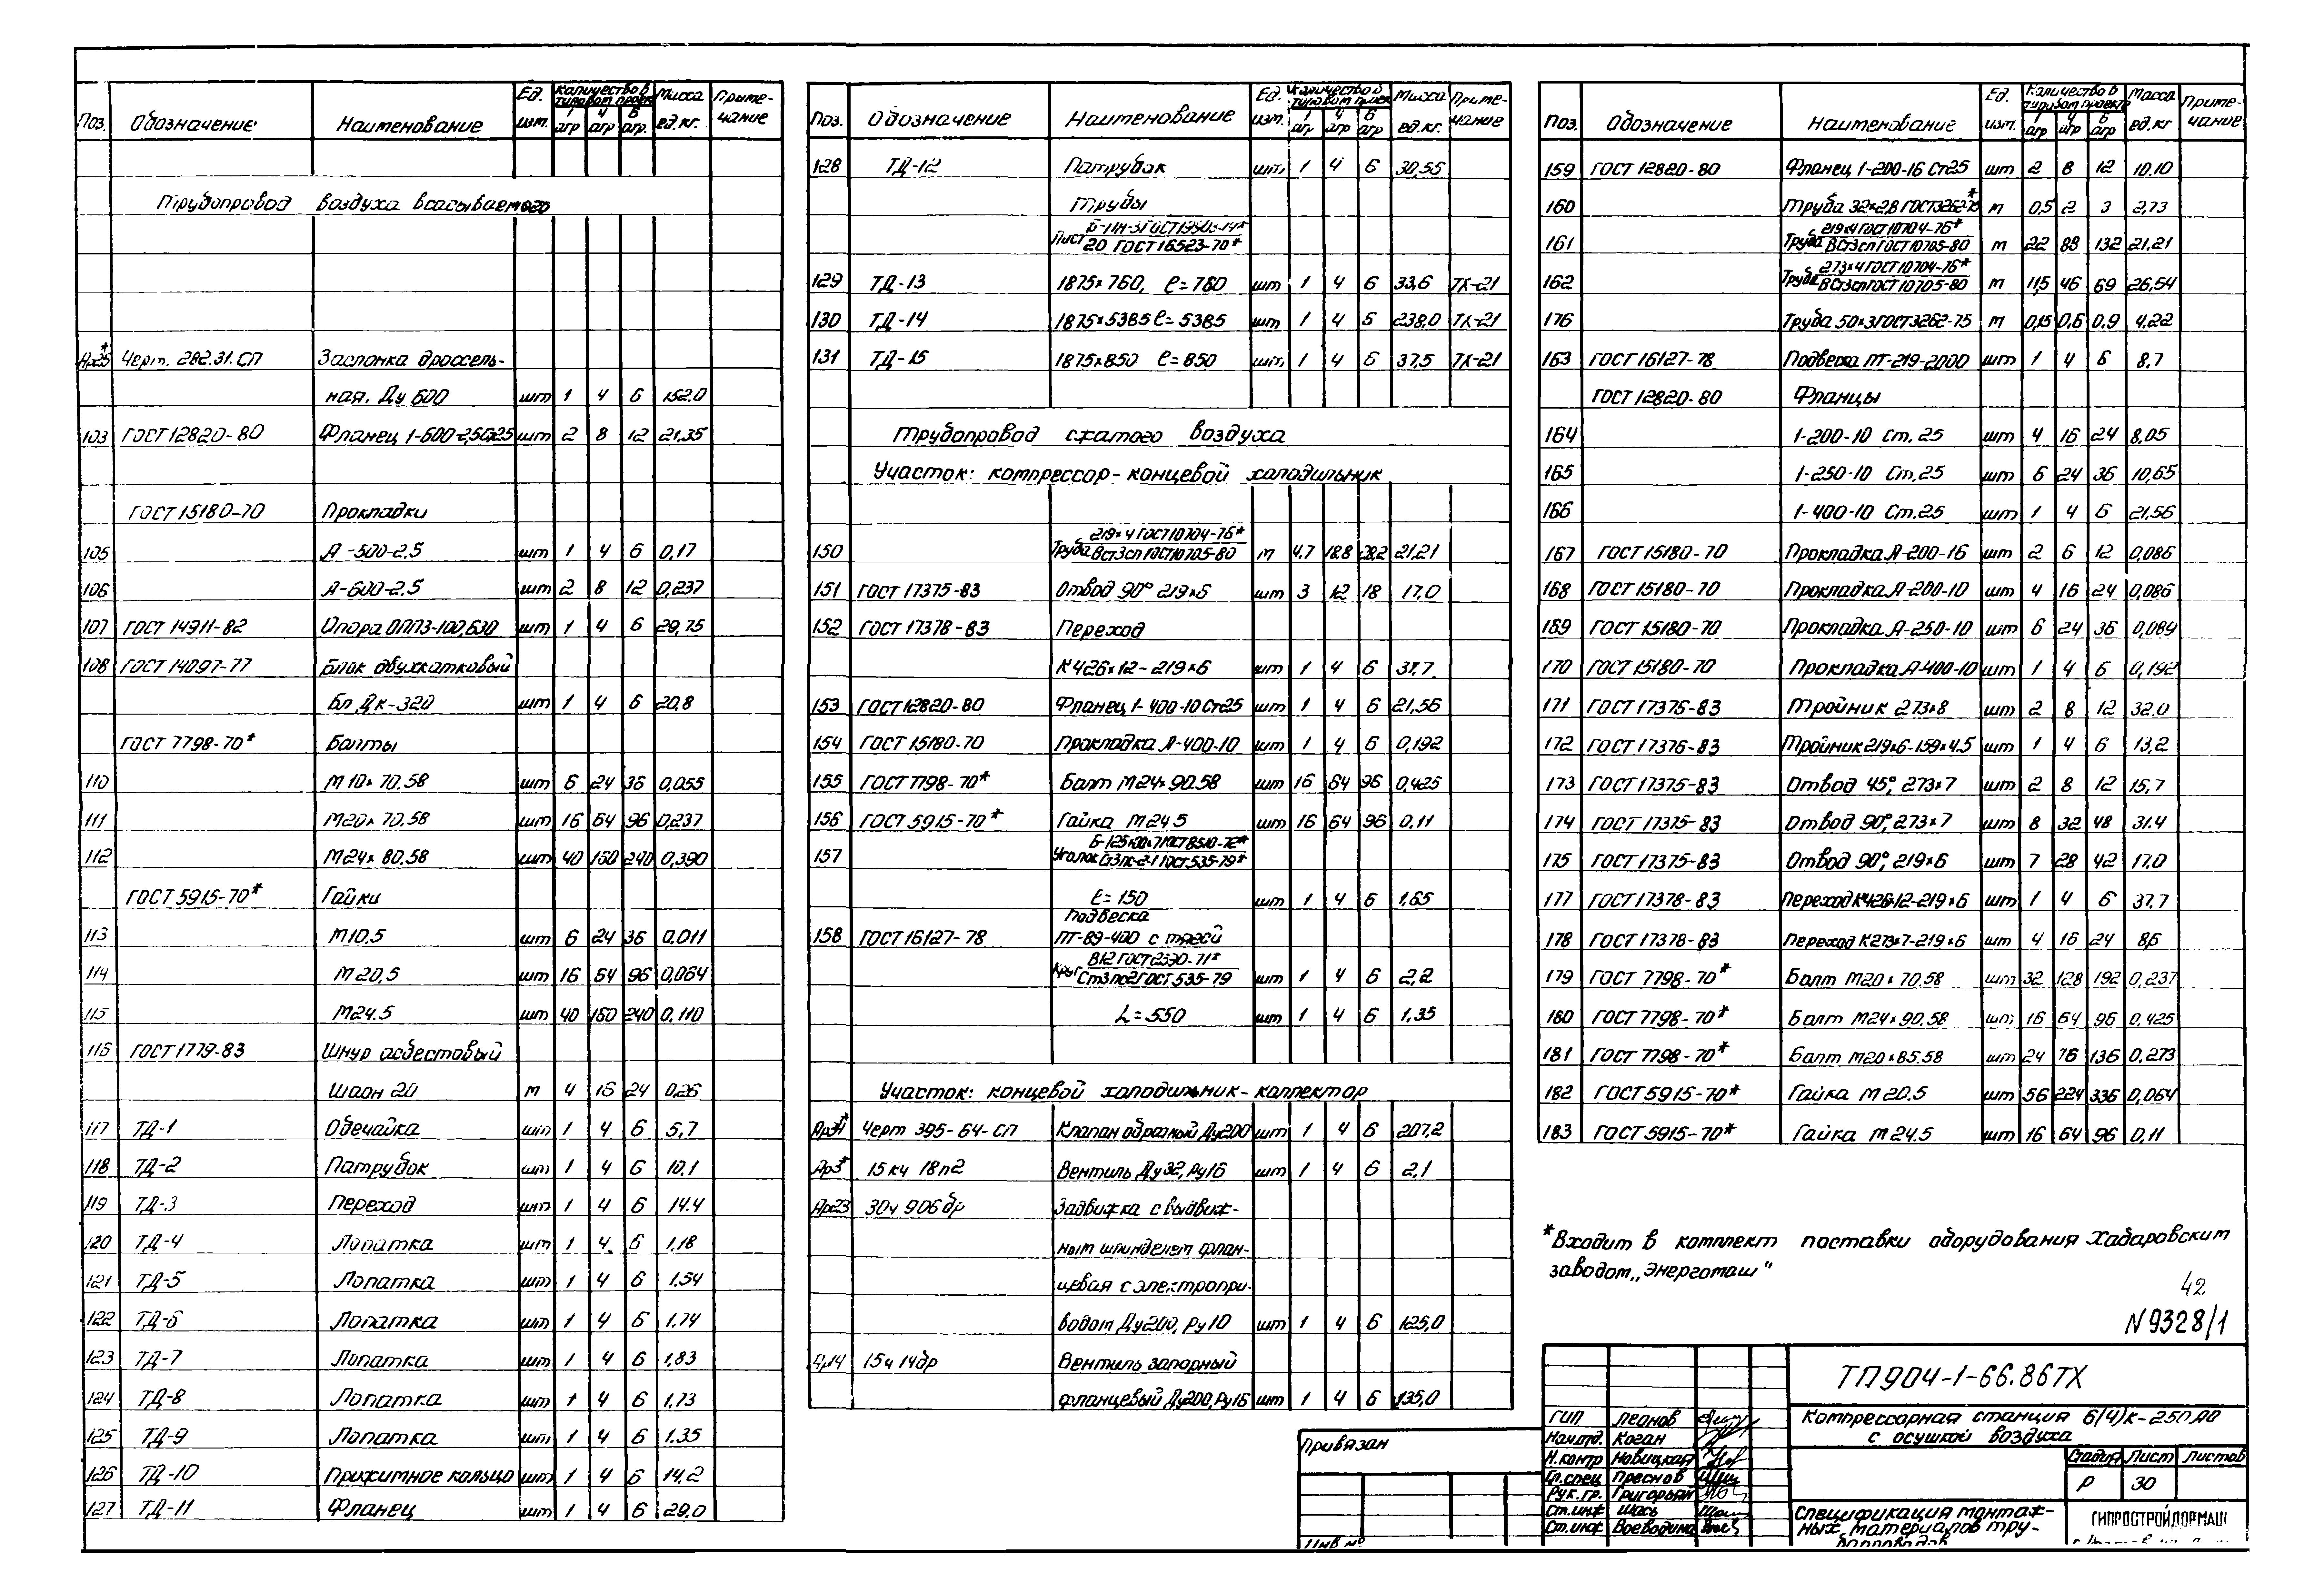 Поз. Обозначение Наименование Ед. изм. Количество в типовом проекте 1 агр 4 агр 6 агр. Масса ед.кг. Приме-чание
Трубопровод воздуха всасываемого
Ар25* Черт. 282.31.СП Заслонка дроссель-
ная. Ду 600 шт 1 4 6 152,0
103 ГОСТ 12820-80 Фланец 1-600-2,5Ст25 шт 2 8 12 21,35
ГОСТ 15180-70 Прокладки
105 А-500-2,5 шт 1 4 6 0,17
106 А-600-2.5 шт 2 8 12 0,237
107 ГОСТ 14911-82 Опора ОПП3-100,630 шт 1 4 6 29,75
108 ГОСТ 14097-77 Блок двухкатковый
Бл Дк-320 шт 1 4 6 20,8
ГОСТ 7798-70* Болты
110 М10×70.58 шт 6 24 36 0,055
111 М20×70.58 шт 16 64 96 0,237
112 М24×80.58 шт 40 160 240 0,390
ГОСТ 5915-70* Гайки
113 М10,5 шт 6 24 36 0,011
114 М20,5 шт 16 64 96 0,064
115 М24.5 шт 40 160 240 0,110
116 ГОСТ 1779-83 Шнур асбестовый
Шаон 20 м 4 16 24 0,26
117 ТД-1 Обечайка шт 1 4 6 5,7
118 ТД-2 Патрубок шт 1 4 6 10.1
119 ТД-3 Переход шт 1 4 6 14.4
120 ТД-4 Лопатка шт 1 4 6 1,18
121 ТД-5 Лопатка шт 1 4 6 1.54
122 ТД-6 Лопатка шт 1 4 6 1.74
123 ТД-7 Лопатка шт 1 4 6 1,83
124 ТД-8 Лопатка шт 1 4 6 1,73
125 ТД-9 Лопатка шт 1 4 6 1.35
126 ТД-10 Прижимное кольцо шт 1 4 6 14.2
127 ТД-11 Фланец шт 1 4 6 29.0
Поз. Обозначение Наименование Ед. изм. Количество в типовом проекте 1 агр 4 агр 6 агр Масса ед.кг. Приме-чание
128 ТД-12 Патрубок шт 1 4 6 30,55
Трубы
Лист Б-ПН-3 ГОСТ 19903-74*
20 ГОСТ 16523-70*
129 ТД-13 1875×760, ℓ=760 шт 1 4 6 33,6 ТХ-21
130 ТД-14 1875×5385 ℓ=5385 шт 1 4 6 238,0 ТХ-21
131 ТД-15 1875×850 ℓ=850 шт 1 4 6 37,5 ТХ-21
Трубопровод сжатого воздуха
Участок: компрессор-концевой холодильник
150 Труба 219×4 ГОСТ 10704-76* / ВСт3сп ГОСТ 10705-80 м 4.7 18.8 28,2 21,21
151 ГОСТ 17375-83 Отвод 90° 219×6 шт 3 12 18 17,0
152 ГОСТ 17378-83 Переход
К426×12-219×6 шт 1 4 6 37,7
153 ГОСТ 12820-80 Фланец 1-400-10 Ст25 шт 1 4 6 21,56
154 ГОСТ 15180-70 Прокладка А-400-10 шт 1 4 6 0,192
155 ГОСТ 7798-70* Болт М24×90.58 шт 16 64 96 0,425
156 ГОСТ 5915-70* Гайка М24 5 шт 16 64 96 0.11
157 Уголок Б-125×80×7 ГОСТ 8510-72* / Ст3пс-2-1 ГОСТ 535-79*
ℓ=150 шт 1 4 6 1,65
Подвеска
158 ГОСТ 16127-78 ПТ-89-400 с тягой
Круг В12 ГОСТ 2590-71* / Ст3пс2 ГОСТ 535-79 шт 1 4 6 2,2
L=550 шт 1 4 6 1.35
Участок: концевой холодильник-коллектор
Ар34* Черт 395-64-СП Клапан обратный Ду200 шт 1 4 6 207,2
Ар3* 15кч 18п2 Вентиль Ду32, Ру16 шт 1 4 6 2,1
Ар23 30ч 906бр Задвижка с выдвиж-
ным шпинделем флан-
цевая с электропри-
водом Ду200, Ру10 шт 1 4 6 125,0
Ар14 15ч 14бр Вентиль запорный
фланцевый Ду200, Ру16 шт 1 4 6 135,0
Поз. Обозначение Наименование Ед. изм. Количество в типовом проекте 1 агр 4 агр 6 агр Масса ед.кг Приме-чание
159 ГОСТ 12820-80 Фланец 1-200-16 Ст25 шт 2 8 12 10.10
160 Труба 32×2,8 ГОСТ 3262-75* м 0,5 2 3 2,73
161 Труба 219×4 ГОСТ 10704-76* / ВСт3сп ГОСТ 10705-80 м 22 88 132 21,21
162 Труба 273×4 ГОСТ 10704-76* / ВСт3сп ГОСТ 10705-80 м 11,5 46 69 26,54
176 Труба 50×3 ГОСТ 3262-75 м 0,15 0,6 0,9 4,22
163 ГОСТ 16127-78 Подвеска ПТ-219-2000 шт 1 4 6 8,7
ГОСТ 12820-80 Фланцы
164 1-200-10 ст. 25 шт 4 16 24 8,05
165 1-250-10 Ст.25 шт 6 24 36 10,65
166 1-400-10 Ст.25 шт 1 4 6 21,56
167 ГОСТ 15180-70 Прокладка А-200-16 шт 2 6 12 0,086
168 ГОСТ 15180-70 Прокладка А-200-10 шт 4 16 24 0,086
169 ГОСТ 15180-70 Прокладка А-250-10 шт 6 24 36 0,089
170 ГОСТ 15180-70 Прокладка А-400-10 шт 1 4 6 0,192
171 ГОСТ 17376-83 Тройник 273×8 шт 2 8 12 32.0
172 ГОСТ 17376-83 Тройник 219×6-159×4.5 шт 1 4 6 13,2
173 ГОСТ 17375-83 Отвод 45°, 273×7 шт 2 8 12 15,7
174 ГОСТ 17375-83 Отвод 90°, 273×7 шт 8 32 48 31.4
175 ГОСТ 17375-83 Отвод 90°, 219×6 шт 7 28 42 17.0
177 ГОСТ 17378-83 Переход К426×12-219×6 шт 1 4 6 37.7
178 ГОСТ 17378-83 Переход К273×7-219×6 шт 4 16 24 8,6
179 ГОСТ 7798-70* Болт М20×70.58 шт 32 128 192 0,237
180 ГОСТ 7798-70* Болт М24×90.58 шт 16 64 96 0,425
181 ГОСТ 7798-70* Болт М20×85.58 шт 24 76 136 0,273
182 ГОСТ 5915-70* Гайка М20.5 шт 56 224 336 0,064
183 ГОСТ 5915-70* Гайка М24.5 шт 16 64 96 0,11
*Входит в комплект поставки оборудования Хабаровским
заводом „Энергомаш"
42
N 9328/1
Привязан
Инв №
ТП904-1-66.86ТХ
Компрессорная станция 6(4)К-250АО
с осушкой воздуха
ГИП Леонов
Нач.отд. Коган
Н.контр Новицкая
Гл.спец Преснов
Рук.гр. Григорьян
Ст.инж Шась
Ст.инж Воеводина
Стадия Лист Листов
Р 30
Спецификация монтаж-
ных материалов тру-
бопроводов
ГИПРОСТРОЙДОРМАШ